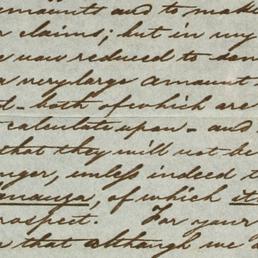 and to make
claims; but in my
now reduced to
a very large amount
both of which are
calculate upon - and
that they will not be
unless indeed t
bonanza, of which it
rospect. For your
that although we